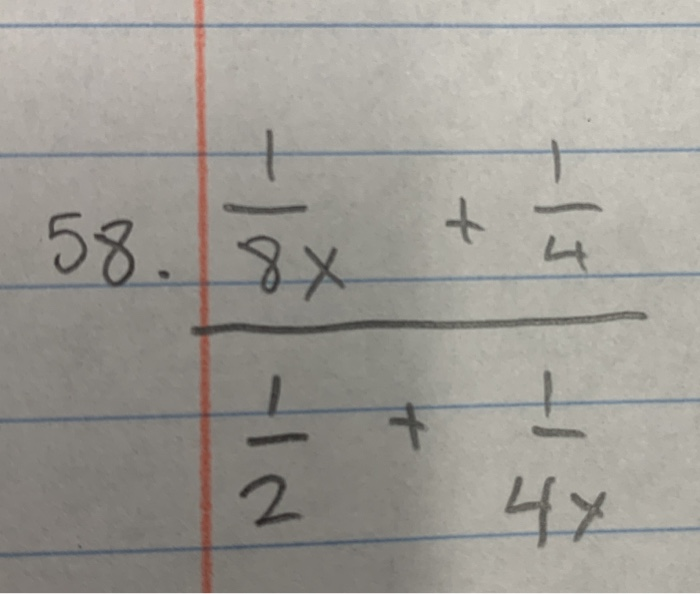 58. 1/8x + 1/4
1/2 + 1/4x